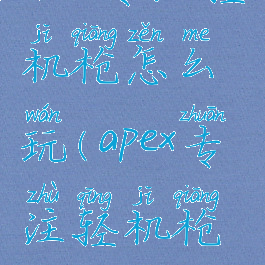 jī qiāng zěn me
机枪怎么
wán zhuān
玩(apex专
zhù qīng jī qiāng
注轻机枪